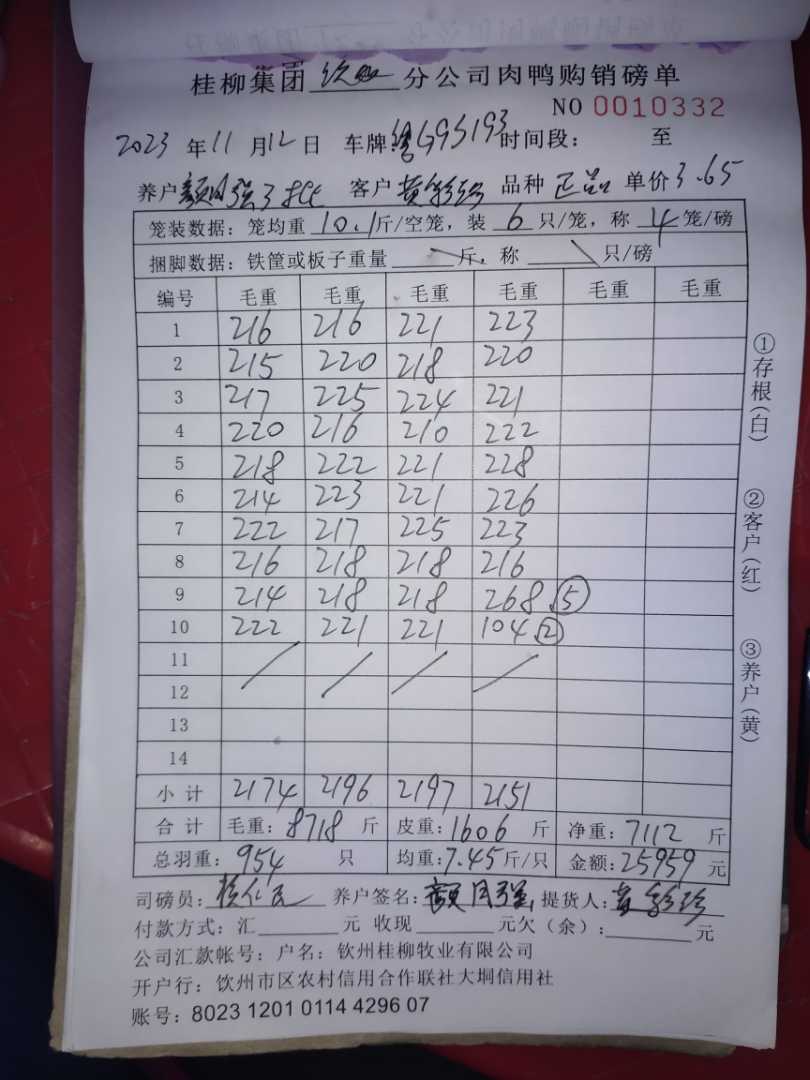 桂柳集团钦州分公司肉鸭购销磅单
NO 0010332
2023年11月12日 车牌 G9S193 时间段： 至
养户 客户 黄彩珍 品种 正品 单价 3.65
笼装数据：笼均重 10.1 斤/空笼，装 6 只/笼，称 4 笼/磅
捆脚数据：铁筐或板子重量 斤，称 只/磅
编号 毛重 毛重 毛重 毛重 毛重 毛重
1 216 216 221 223
2 215 220 218 220
3 217 225 224 221
4 220 216 210 222
5 218 222 221 228
6 214 223 221 226
7 222 217 225 223
8 216 218 218 216
9 214 218 218 268 ⑤
10 222 221 221 104 ②
11
12
13
14
小计 2174 2196 2197 2151
合计 毛重：8718 斤 皮重：1606 斤 净重：7112 斤
总羽重：954 只 均重：7.45 斤/只 金额：25959 元
司磅员： 养户签名： 提货人：黄彩珍
付款方式：汇 元 收现 元欠（余）： 元
公司汇款帐号：户名：钦州桂柳牧业有限公司
开户行：饮州市区农村信用合作联社大垌信用社
账号：8023 1201 0114 4296 07
①存根（白）
②客户（红）
③养户（黄）